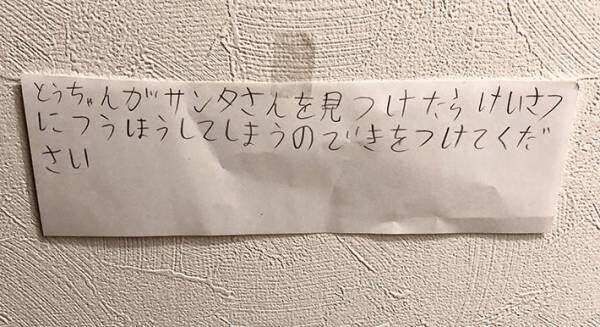 とうちゃんがサンタさんを見つけたらけいさつ
につうほうしてしまうのできをつけてくだ
さい